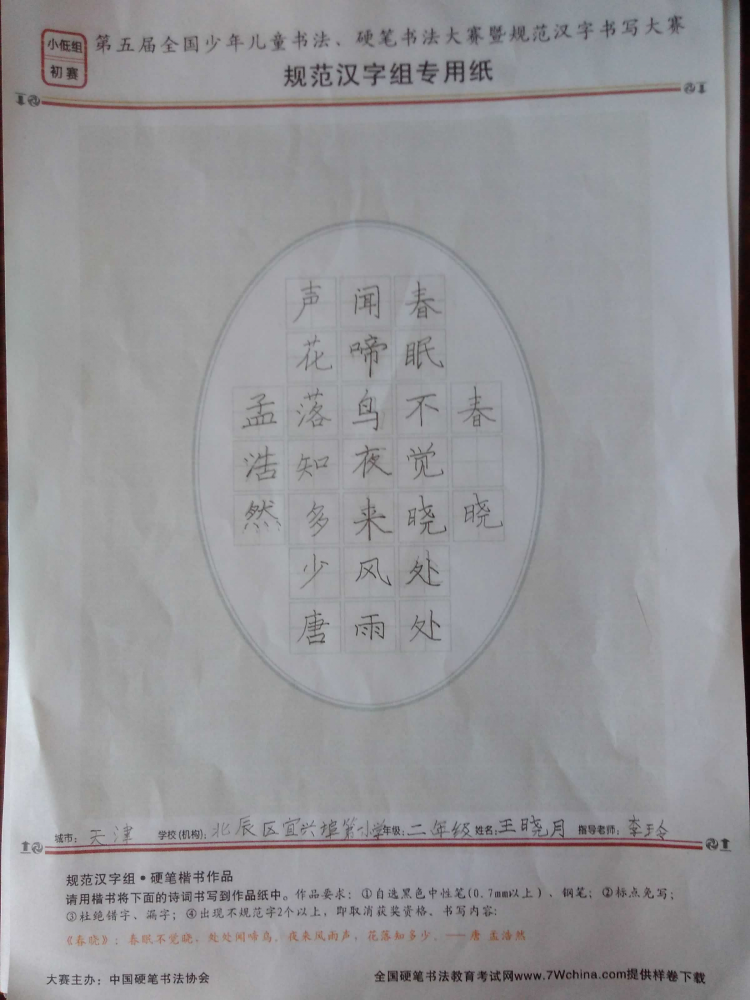 小低组
初赛
第五届全国少年儿童书法、硬笔书法大赛暨规范汉字书写大赛
规范汉字组专用纸
春晓
春眠不觉晓处处
闻啼鸟夜来风雨
声花落知多少唐
孟浩然
城市：天津 学校(机构)：北辰区宜兴埠第一小学 年级：二年级 姓名：王晓月 指导老师：李玲
规范汉字组·硬笔楷书作品
请用楷书将下面的诗词书写到作品纸中。作品要求：①自选黑色中性笔(0.7mm以上)、钢笔；②标点免写；
③杜绝错字、漏字；④出现不规范字2个以上，即取消获奖资格。书写内容：
《春晓》：春眠不觉晓，处处闻啼鸟。夜来风雨声，花落知多少。——唐 孟浩然
大赛主办：中国硬笔书法协会
全国硬笔书法教育考试网www.7Wchina.com提供样卷下载